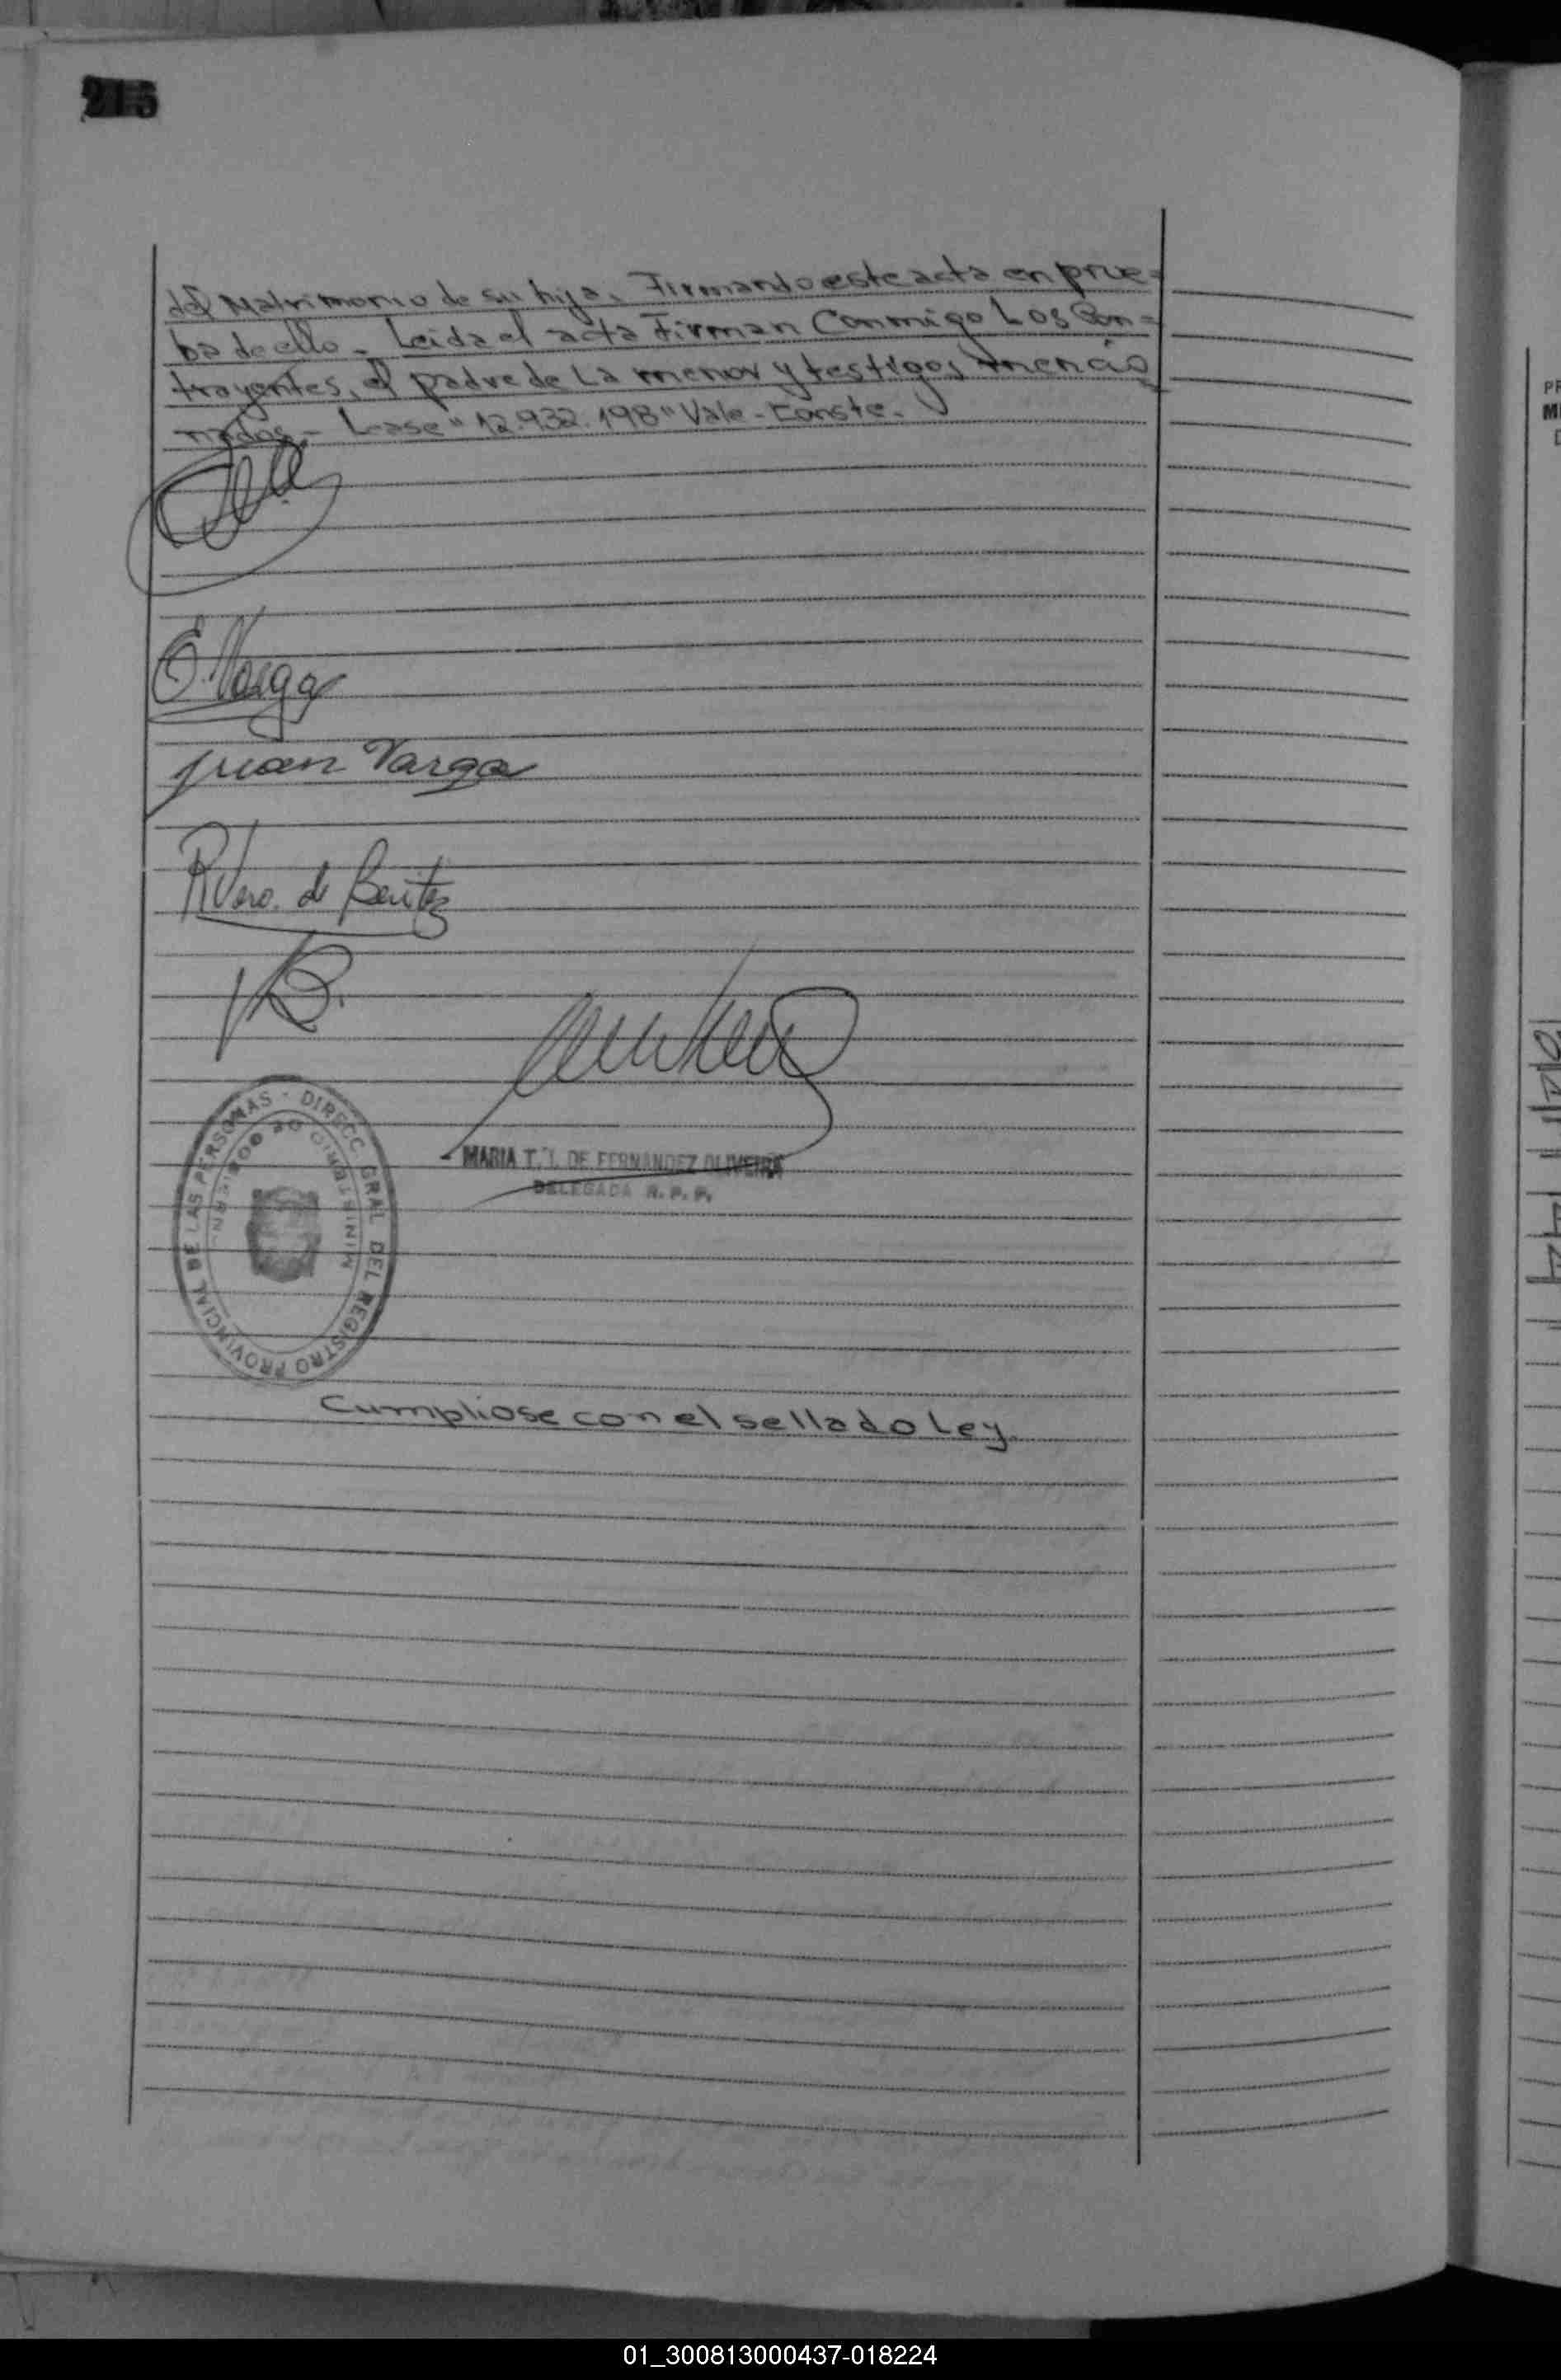 215
del Matrimonio de su hija. Firmando este acta en prue=
ba de ello - Leida el acta Firman Conmigo Los Con=
trayentes, el padre de La menor y testigos mencio
nados.- Lease "12.932.198" Vale - Conste.
E. Varga
Juan Varga
R Vero. de Benitez
MARIA T. I. DE FERNANDEZ OLIVEIRA
DELEGADA R. P. P.
DIRECC. GRAL. DEL REGISTRO PROVINCIAL DE LAS PERSONAS -
MINISTERIO DE GOBIERN
Cumpliose con el sellado Ley.
01_300813000437-018224